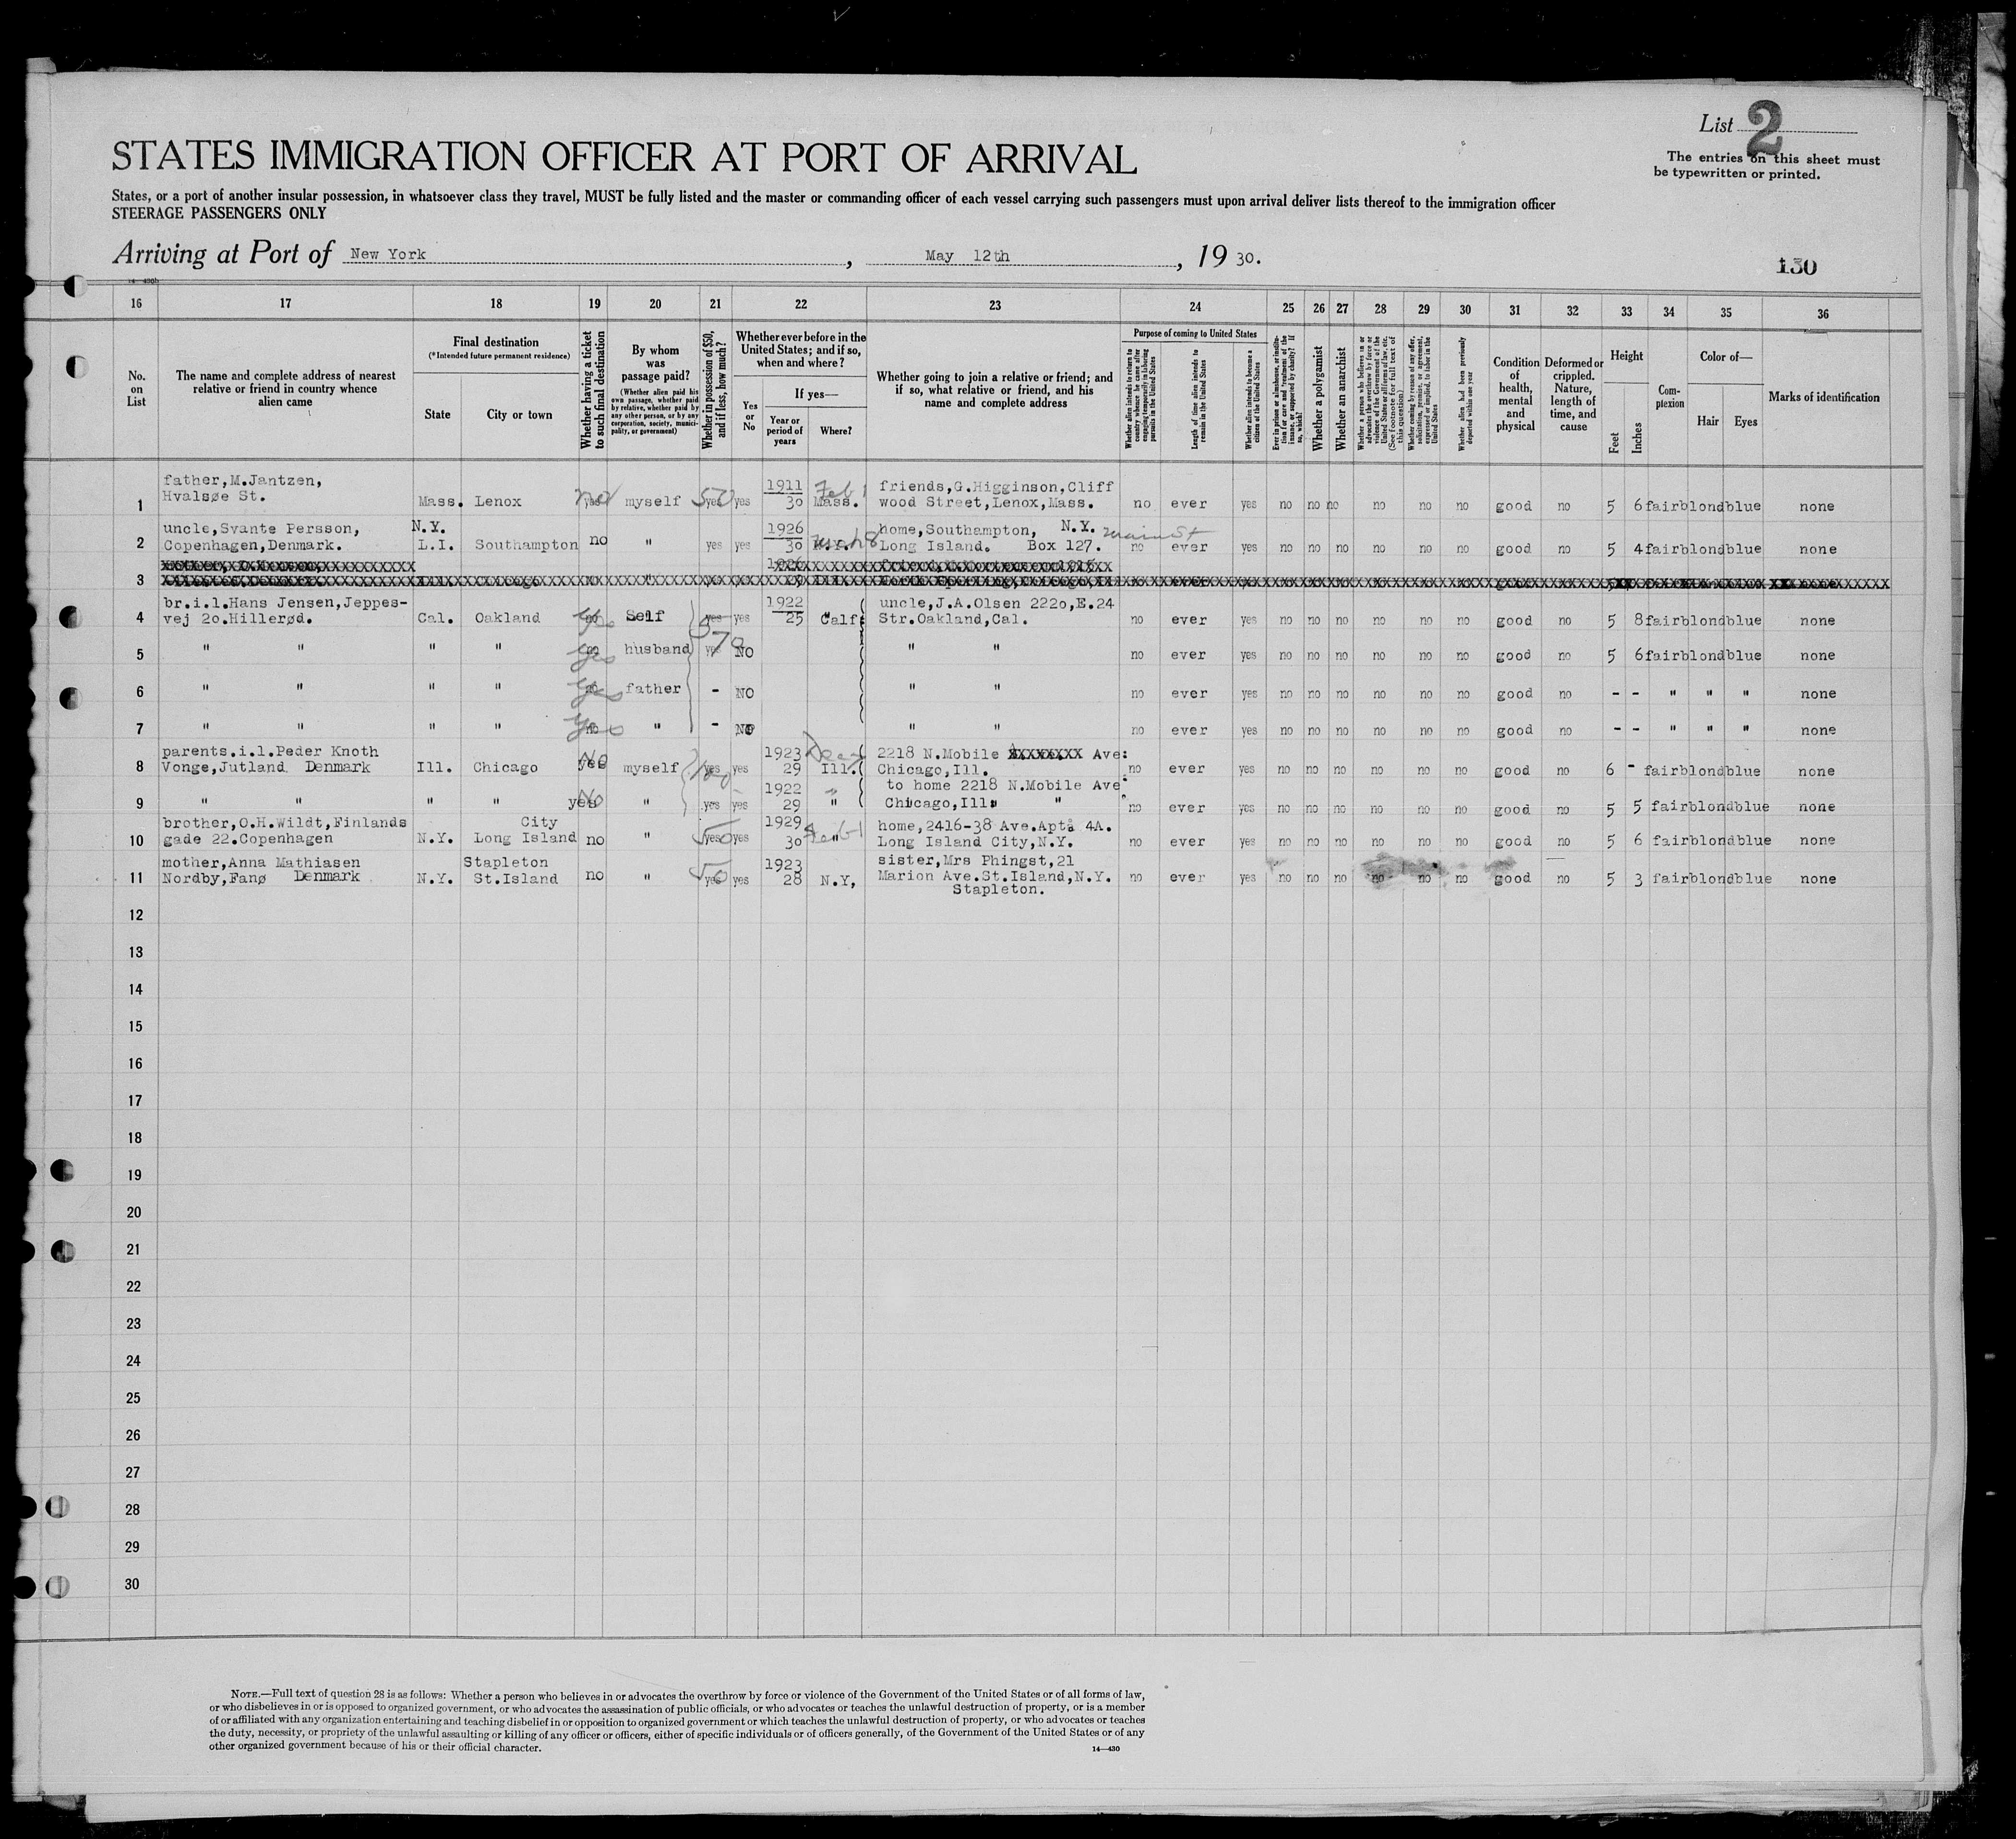 List 2
The entries on this sheet must
be typewritten or printed.
STATES IMMIGRATION OFFICER AT PORT OF ARRIVAL
States, or a port of another insular possession, in whatsoever class they travel, MUST be fully listed and the master or commanding officer of each vessel carrying such passengers must upon arrival deliver lists thereof to the immigration officer
STEERAGE PASSENGERS ONLY
Arriving at Port of New York, May 12th, 19 30.
130
14—430b
16 17 18 19 20 21 22 23 24 25 26 27 28 29 30 31 32 33 34 35 36
No. on List
The name and complete address of nearest relative or friend in country whence alien came
Final destination
(*Intended future permanent residence)
State
City or town
Whether having a ticket to such final destination
By whom was passage paid?
(Whether alien paid his own passage, whether paid by relative, whether paid by any other person, or by any corporation, society, municipality, or government)
Whether in possession of $50, and if less, how much?
Whether ever before in the United States; and if so, when and where?
Yes or No
If yes—
Year or period of years
Where?
Whether going to join a relative or friend; and if so, what relative or friend, and his name and complete address
Purpose of coming to United States
Whether alien intends to return to country whence he came after engaging temporarily in laboring pursuits in the United States
Length of time alien intends to remain in the United States
Whether alien intends to become a citizen of the United States
Ever in prison or almshouse, or institution for care and treatment of the insane, or supported by charity? If so, which?
Whether a polygamist
Whether an anarchist
Whether a person who believes in or advocates the overthrow by force or violence of the Government of the United States or all forms of law, etc. (See footnote for full text of this question)
Whether coming by reason of any offer, solicitation, promise, or agreement, expressed or implied, to labor in the United States
Whether alien had been previously deported within one year
Condition of health, mental and physical
Deformed or crippled. Nature, length of time, and cause
Height
Feet
Inches
Complexion
Color of—
Hair
Eyes
Marks of identification
father,M.Jantzen, 1911 Feb 1 friends,G.Higginson,Cliff
1 Hvalsøe St. Mass. Lenox no myself 50 yes 30 Mass. wood Street,Lenox,Mass. no ever yes no no no no no no good no 5 6 fair blond blue none
uncle,Svante Persson, N.Y. 1926 home,Southampton, N.Y. Main St
2 Copenhagen,Denmark. L.I. Southampton no " yes yes 30 Long Island. Box 127. no ever yes no no no no no no good no 5 4 fair blond blue none
3
br.i.l.Hans Jensen,Jeppes- 1922 uncle,J.A.Olsen 222o,E.24
4 vej 2o.Hillerød. Cal. Oakland yes Self yes yes 25 Calf. Str.Oakland,Cal. no ever yes no no no no no no good no 5 8 fair blond blue none
570
5 " " " " yes husband yes NO " " no ever yes no no no no no no good no 5 6 fair blond blue none
6 " " " " yes father - NO " " no ever yes no no no no no no good no - - " " " none
7 " " " " yes " - NO " " no ever yes no no no no no no good no - - " " " none
parents.i.l.Peder Knoth 1923 2218 N.Mobile Ave:
8 Vonge,Jutland Denmark Ill. Chicago No myself yes yes 29 Ill. Chicago,Ill. no ever yes no no no no no no good no 6 - fair blond blue none
1922 to home 2218 N.Mobile Ave.
9 " " " " No " yes yes 29 " Chicago,Ill. " no ever yes no no no no no no good no 5 5 fair blond blue none
brother,O.H.Wildt,Finlands City 1929 Feb 1 home,2416-38 Ave.Apt. 4A.
10 gade 22.Copenhagen N.Y. Long Island no " 50 yes 30 " Long Island City,N.Y. no ever yes no no no no no no good no 5 6 fair blond blue none
mother,Anna Mathiasen Stapleton 1923 sister,Mrs Phingst,21
11 Nordby,Fanø Denmark N.Y. St.Island no " 50 yes yes 28 N.Y, Marion Ave.St.Island,N.Y. no ever yes no no no no no no good no 5 3 fair blond blue none
Stapleton.
12
13
14
15
16
17
18
19
20
21
22
23
24
25
26
27
28
29
30
NOTE.—Full text of question 28 is as follows: Whether a person who believes in or advocates the overthrow by force or violence of the Government of the United States or of all forms of law,
or who disbelieves in or is opposed to organized government, or who advocates the assassination of public officials, or who advocates or teaches the unlawful destruction of property, or is a member
of or affiliated with any organization entertaining and teaching disbelief in or opposition to organized government or which teaches the unlawful destruction of property, or who advocates or teaches
the duty, necessity, or propriety of the unlawful assaulting or killing of any officer or officers, either of specific individuals or of officers generally, of the Government of the United States or of any
other organized government because of his or their official character.
14—430